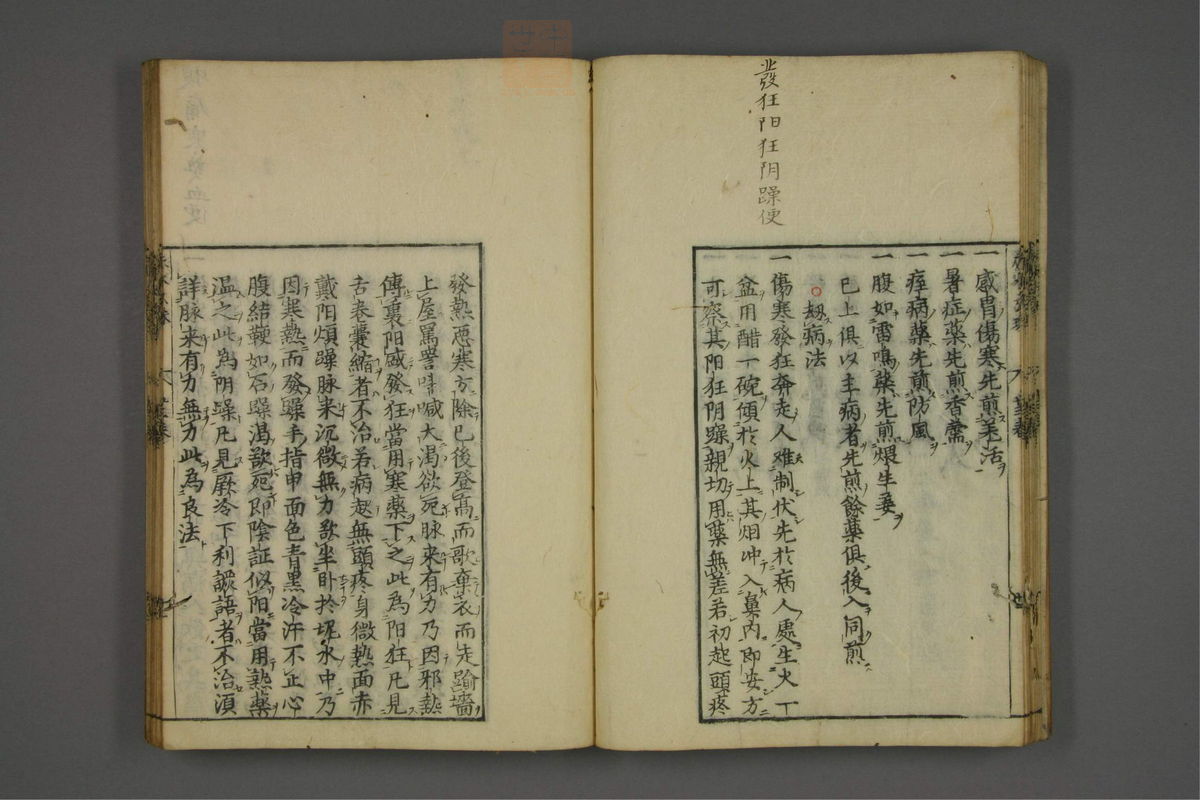 發狂阳狂阴躁便
一感冒傷寒先煎羗活
一暑症藥先煎香薷
一痓病藥先煎防風
一腹如雷鳴藥先煎煨生姜
已上俱以主病者先煎餘藥俱後入同煎
○劫病法
一傷寒發狂奔走人难制伏先於病人處生火一
盆用醋一碗傾於火上其烟冲入鼻内即安方
可察其阳狂阴躁親切用藥無差若初起頭疼
發熱惡寒方除已後登高而歌棄衣而走踰墻
上屋罵詈呌喊大渴欲死脉来有力乃因邪熱
傳裏阳盛發狂當用寒藥下之此為阳狂凡見
舌卷囊縮者不治若病起無頭疼身微熱面赤
戴阳煩躁脉来沉微無力欲坐卧於坭水中乃
因寒熱而發躁手指甲面色青黑冷汗不止心
腹結鞕如石躁渴欲死即陰証似阳當用熱藥
温之此為阴躁凡見厥冷下利讝語者不治湏
詳脉来有力無力此為良法